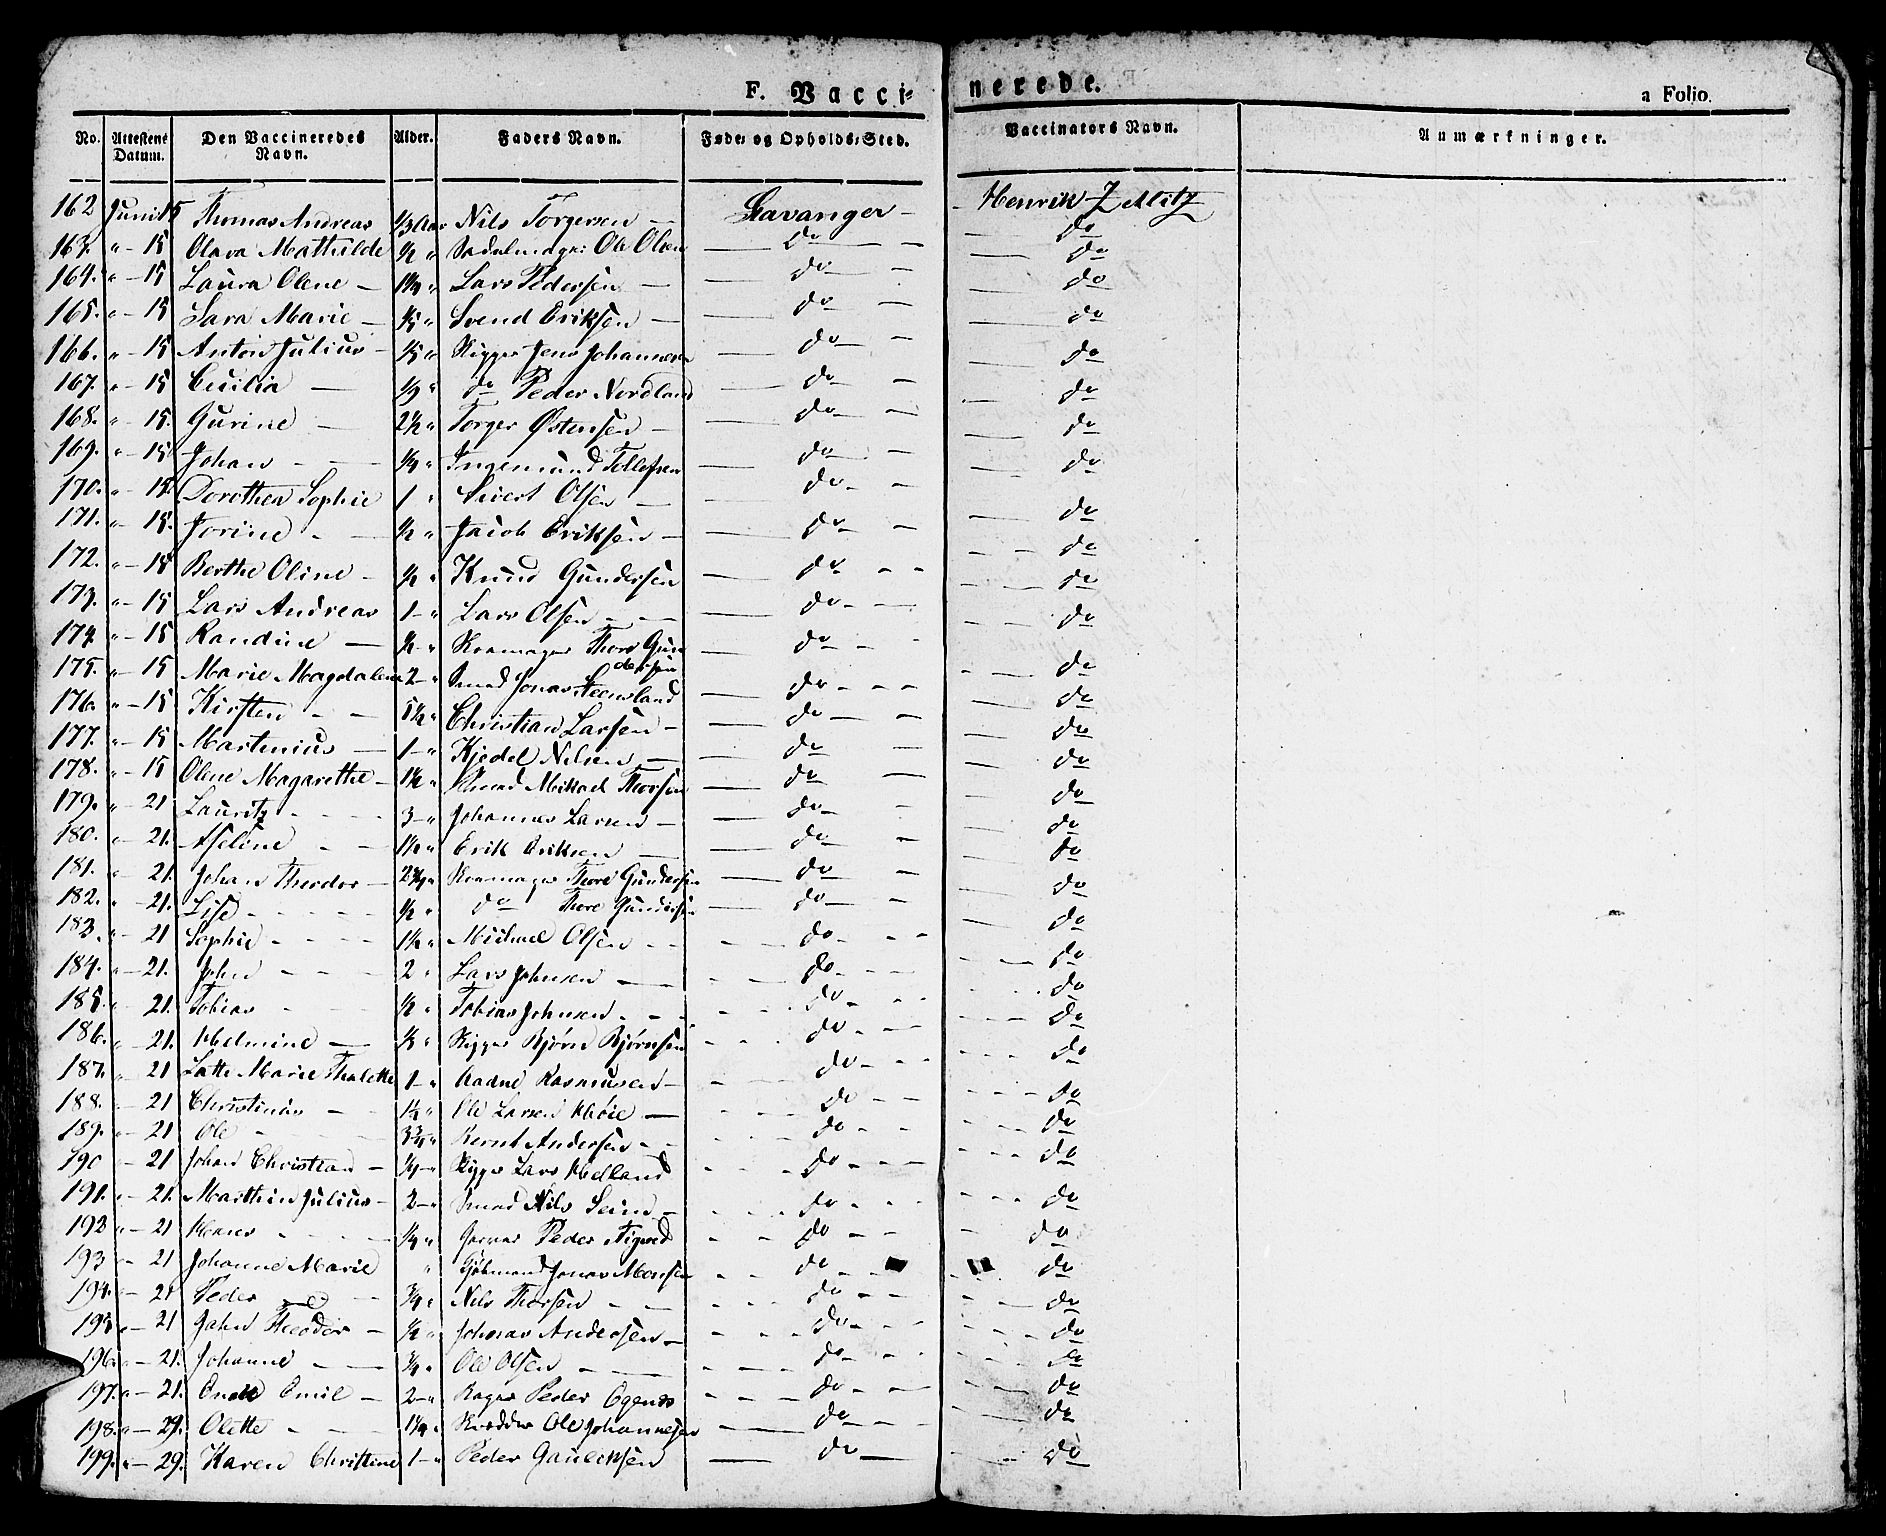 F. Vacci-
nerede.
a Folio.
No. Attestens Datum. Den Vaccineredes Navn. Alder. Faders Navn. Føde- og Opholds-Sted. Vaccinators Navn. Anmærkninger.
162 Juni 15 Thomas Andreas 1/3 Aar Nils Torgersen — Stavanger — Henrik
163. " - 15 Olava Mathilde 1/2 " Ole Olsen — do — do
164. " - 15 Laura Olene — " Lars Pedersen — do — do
165. " - 15 Sara Marie — 1/5 " Svend Eriksen — do — do
166. " - 15 Anton Julius — 1/5 " Rigger Jens Johannesen — do — do
167. " - 15 Cecilia — 1/9 " do Peder Nordland — do — do
168. " - 15. Gurine — 2 1/2 " Torger Østensen — do — do
169. " - 15 Johan — 1/4 " Ingemund Tollefsen — do — do
170. " - 15 Dorothea Sophie 1 " Sivert Olsen — do — do
171. " - 15. Jorine — 1/2 " Jacob Eriksen — do — do
172. " - 15 Berthe Oline — 1/2 " Knud Gundersen — do — do
173. " - 15 Lars Andreas 1 - " Lars Olsen — do — do
174 " - 15 Randine — 1/2 - " Thore Gundersen — do — do
175. " - 15 Marie Magdalene 2 - " Smed Jonas Steensland — do — do
176. " - 15 Kirsten — 5 1/2 " Christian Larsen — do — do
177. " - 15 Martinius — 1 - " Kjedel Nilsen — do — do
178. " - 15 Olene Magarethe — 1 1/2 " Smed Mikael Thorsen — do — do
179. " - 21 Lauritz — 3 - " Johannes Larsen — do — do
180. " - 21. Aseline — 1 1/2 " Erik Eriksen — do — do
181. " - 21. Johan Theodor — 2 3/4 " Thore Gundersen — do — do
182. " - 21. Lise — 1/2 " do Thore Gundersen — do — do
183. " - 21 Sophie — 1 1/2 " Michael Olsen — do — do
184. " - 21. John — 2 " Lars Johnsen — do — do
185. " 21. Tobias — 1/2 " Tobias Johnsen — do — do
186. " - 21. Helmine — 1/3 " Rigger Bjørn Bjørnsen — do — do
187. " - 21 Marie Thalette 1 - " Aadne Rasmusen — do — do
188. - 21 Christinus — 1 1/2 " Ole Larsen — do — do
189. - 21 Ole — " Bernt Andersen — do — do
190 - 21 Johan Christian — 1/4 - " Rigger Lars Helland — do — do
191. " - 21. Marthin Julius — 2 - " Smed Nils — do — do
192 " - 21 Hans — 1/4 " Peder — do — do
193 - 21 Johanne Marie " Jonas Monsen — do — do
194. - 21 Peder — 3/4 " Nils Thorsen — do — do
195 " - 21 Jahn Theodor — 1/2 " Johnas Andersen — do — do
196. " - 21. Johanne — 3/4 " Ole Olsen — do — do
197. " - 21. Emil — 2 - " Peder — do — do
198. " - 29. Olette — 1 1/4 " Ole Johannesen — do — do
199. " - 29. Karen Christine 1 - " Peder — do — do